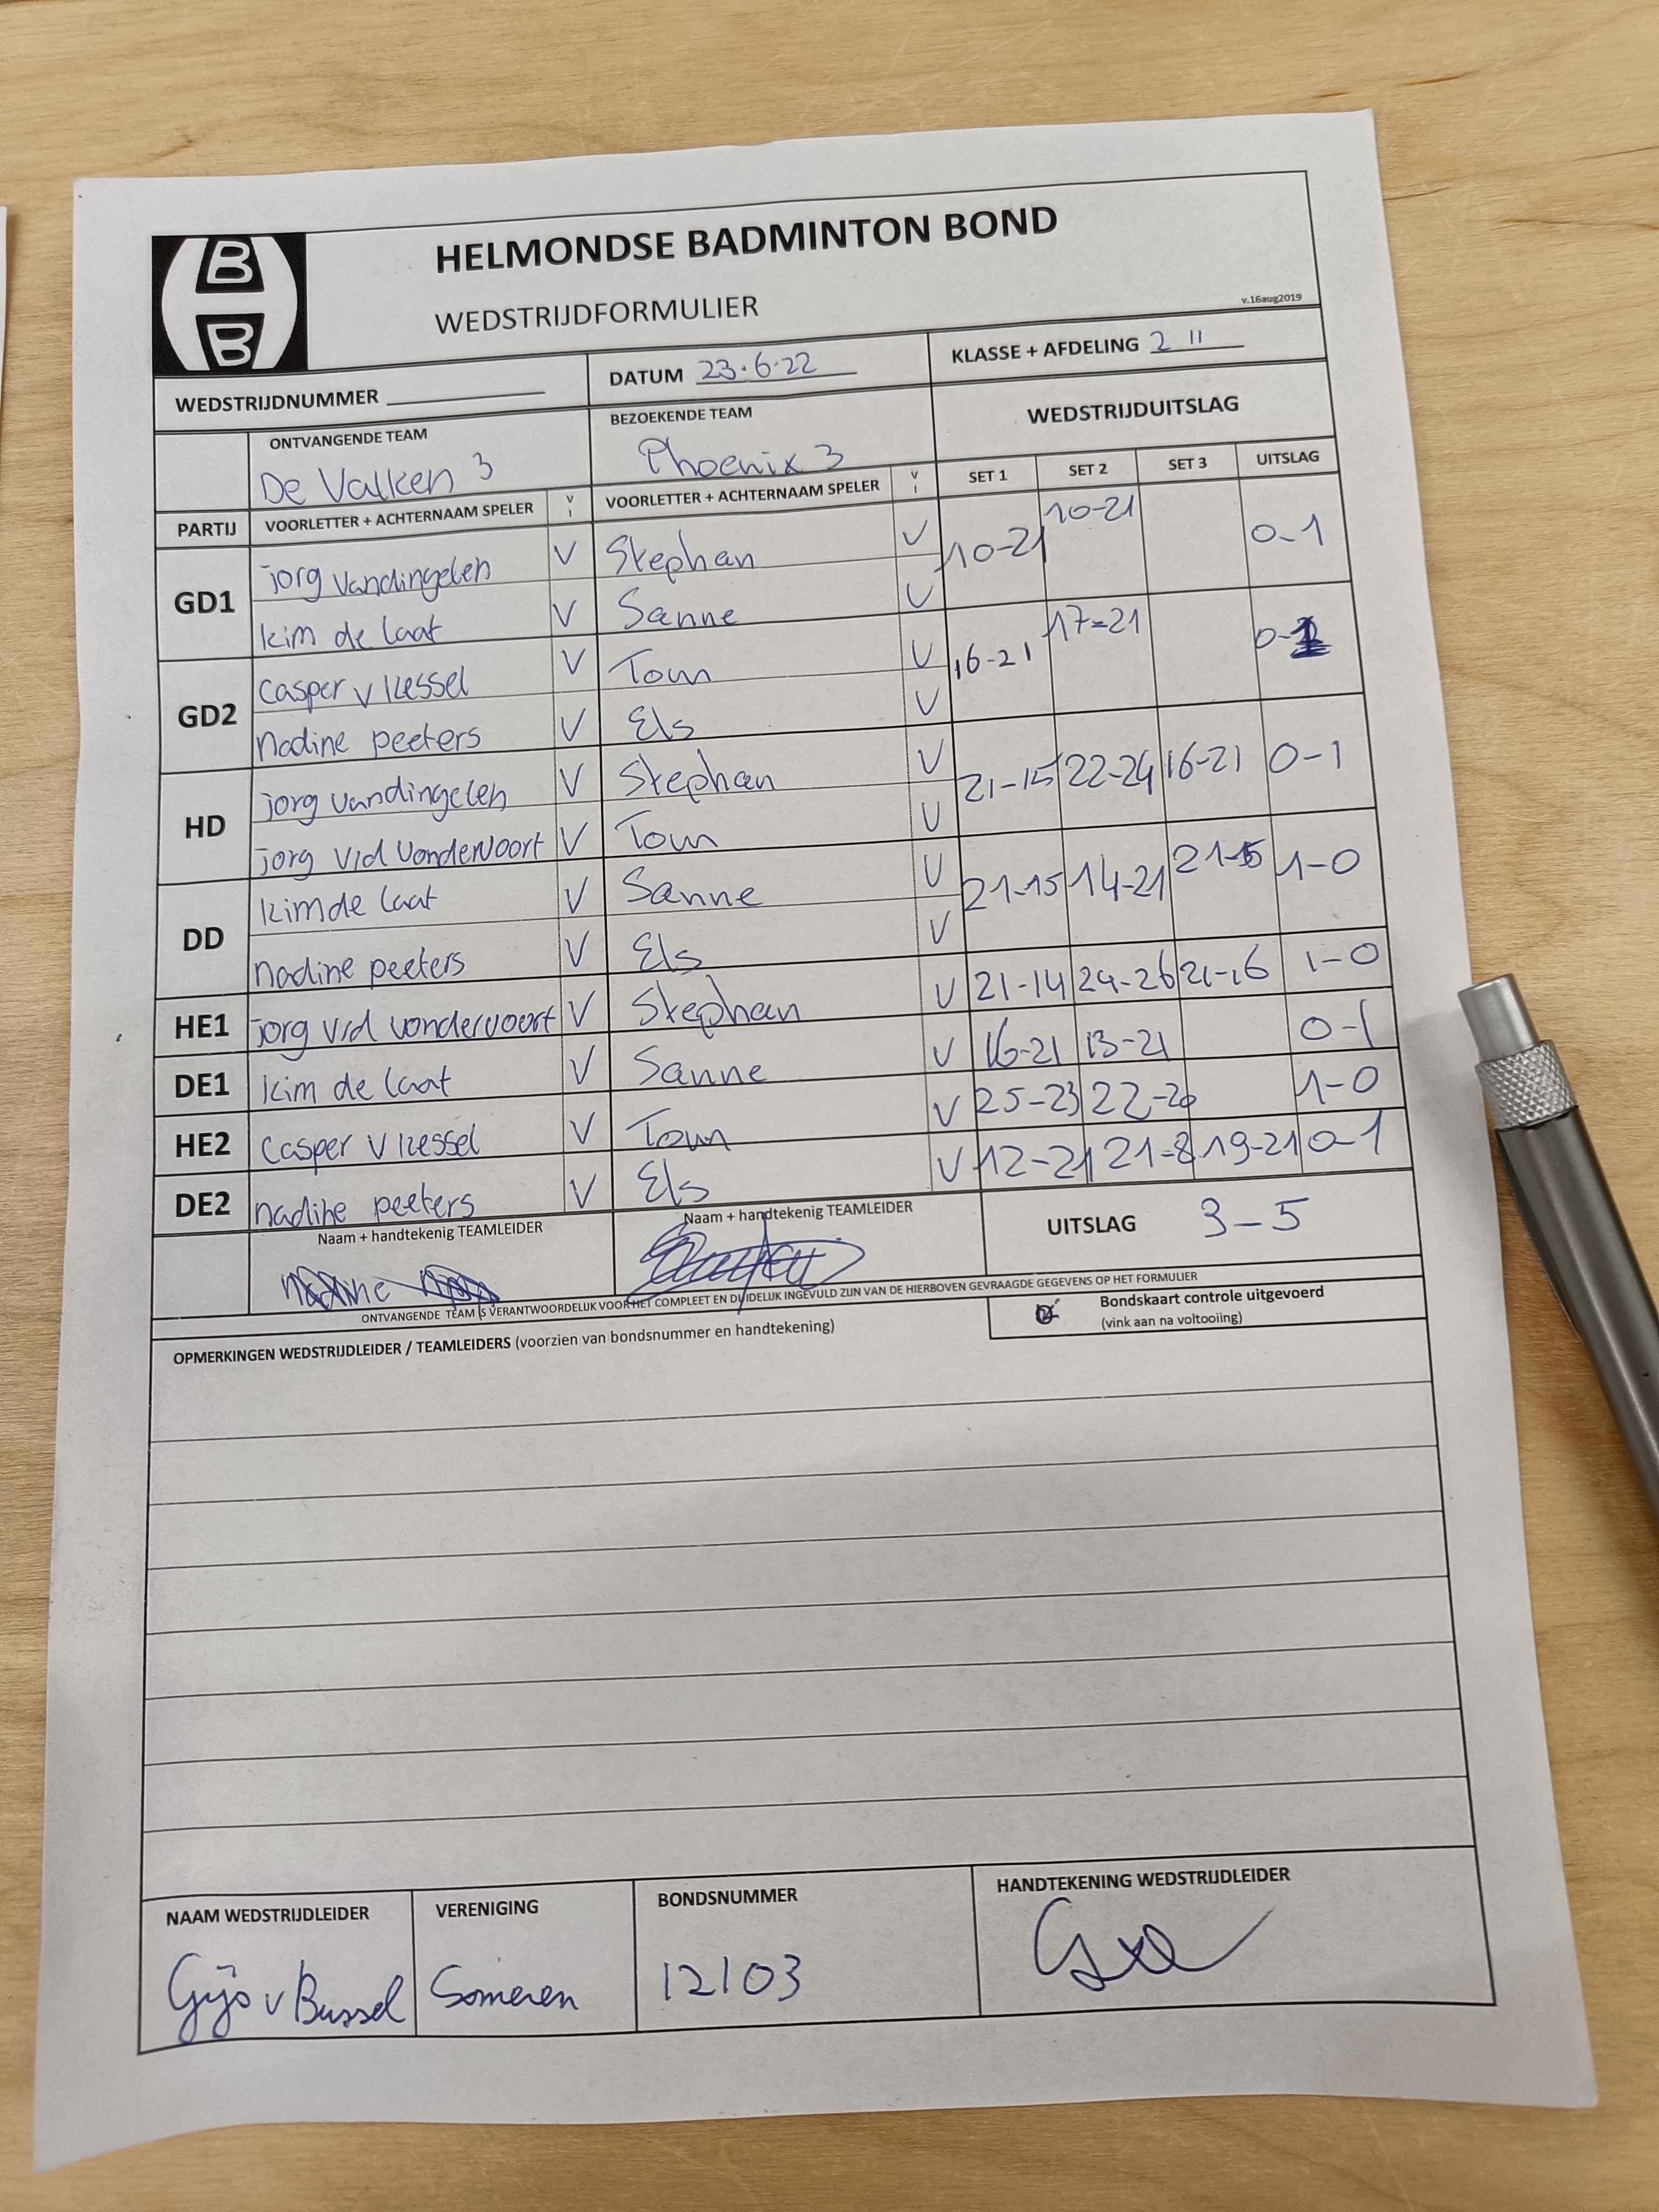 HELMONDSE BADMINTON BOND
WEDSTRIJDFORMULIER
v.16aug2019
WEDSTRIJDNUMMER
DATUM 23.6.22
KLASSE + AFDELING 2 11
ONTVANGENDE TEAM
De Valken 3
BEZOEKENDE TEAM
Phoenix 3
WEDSTRIJDUITSLAG
PARTIJ VOORLETTER + ACHTERNAAM SPELER V I VOORLETTER + ACHTERNAAM SPELER V I SET 1 SET 2 SET 3 UITSLAG
GD1 jorg vandingelen V Stephan V 10-21 10-21 0-1
kim de laat V Sanne V
GD2 Casper v Kessel V Toun V 16-21 17-21 0-1
nadine peeters V Els V
HD jorg vandingelen V Stephan V 21-15 22-24 16-21 0-1
jorg v/d vondervoort V Toun V
DD kim de laat V Sanne V 21-15 14-21 21-15 1-0
nadine peeters V Els V
HE1 jorg v/d vondervoort V Stephan V 21-14 24-26 21-16 1-0
DE1 kim de laat V Sanne V 16-21 13-21 0-1
HE2 Casper v Kessel V Toun V 25-23 22-20 1-0
DE2 nadine peeters V Els V 12-21 21-8 19-21 0-1
Naam + handtekenig TEAMLEIDER
nadine
Naam + handtekenig TEAMLEIDER
UITSLAG 3-5
ONTVANGENDE TEAM IS VERANTWOORDELIJK VOOR HET COMPLEET EN DUIDELIJK INGEVULD ZIJN VAN DE HIERBOVEN GEVRAAGDE GEGEVENS OP HET FORMULIER
Bondskaart controle uitgevoerd
(vink aan na voltooiing)
OPMERKINGEN WEDSTRIJDLEIDER / TEAMLEIDERS (voorzien van bondsnummer en handtekening)
NAAM WEDSTRIJDLEIDER
Gijs v Bussel
VERENIGING
Someren
BONDSNUMMER
12103
HANDTEKENING WEDSTRIJDLEIDER